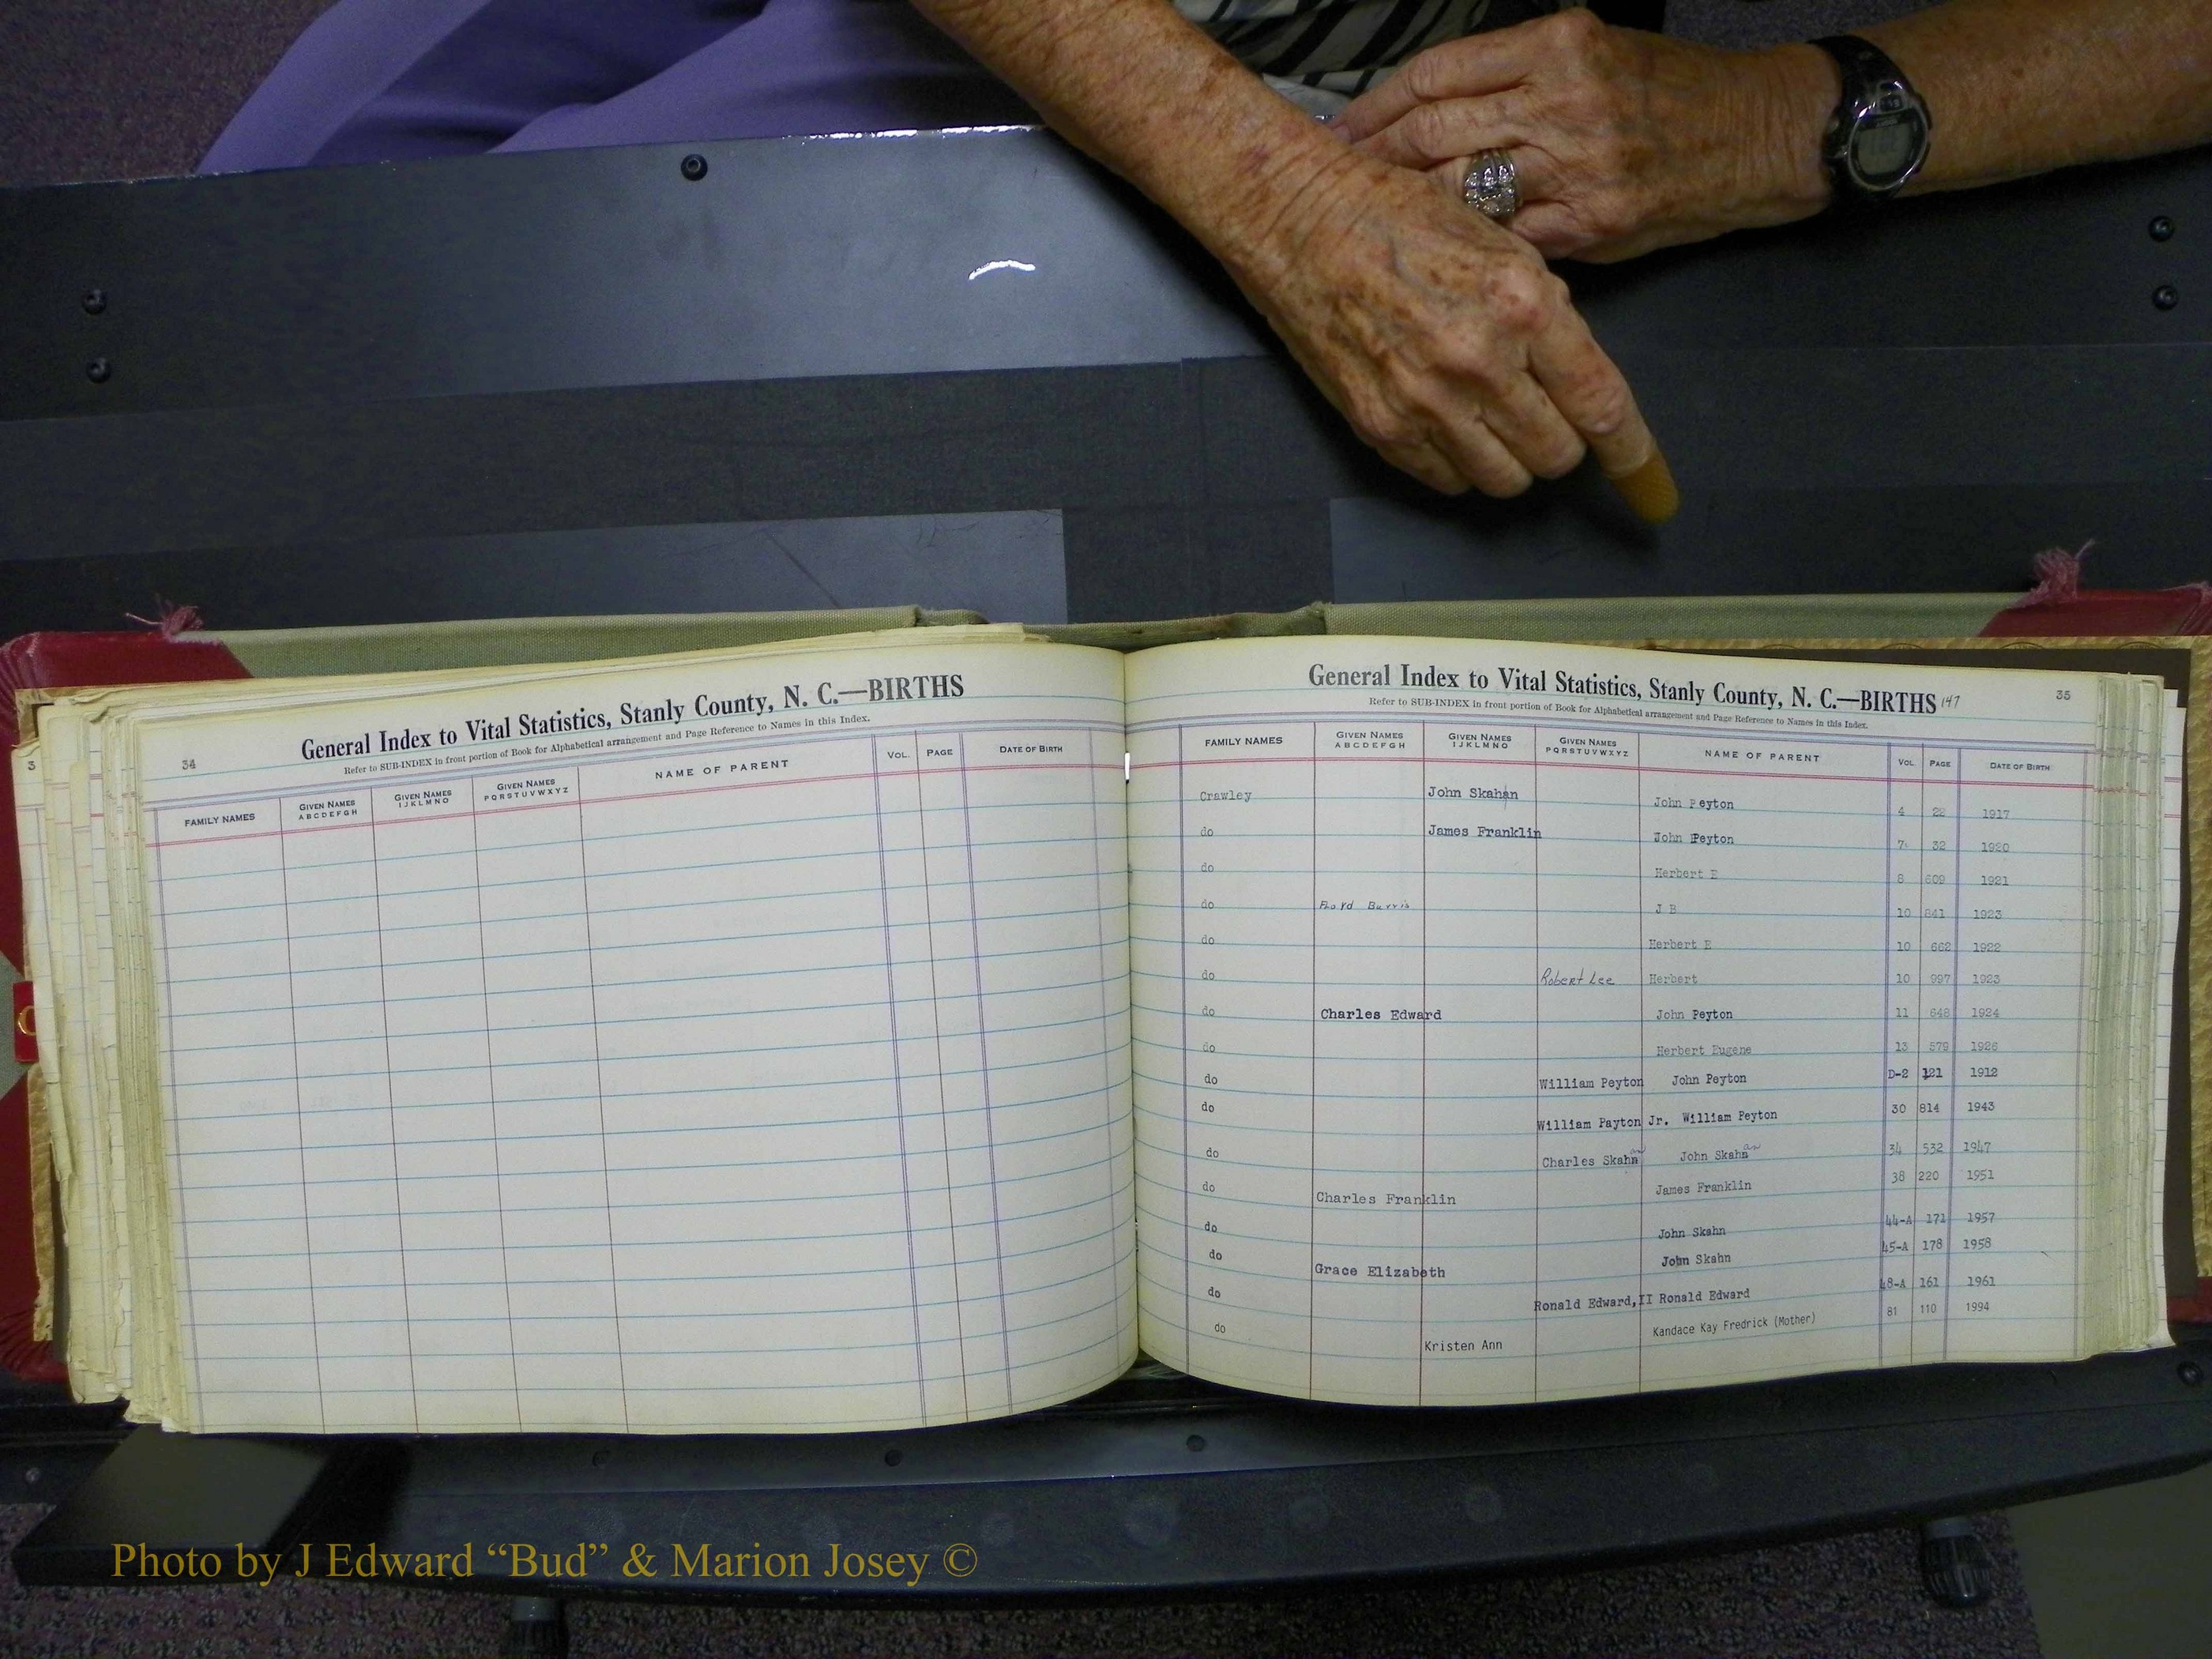 34
General Index to Vital Statistics, Stanly County, N. C.—BIRTHS
Refer to SUB-INDEX in front portion of Book for Alphabetical arrangement and Page Reference to Names in this Index.
FAMILY NAMES GIVEN NAMES ABCDEFGH GIVEN NAMES IJKLMNO GIVEN NAMES PQRSTUVWXYZ NAME OF PARENT VOL. PAGE DATE OF BIRTH
General Index to Vital Statistics, Stanly County, N. C.—BIRTHS 147 35
Refer to SUB-INDEX in front portion of Book for Alphabetical arrangement and Page Reference to Names in this Index.
FAMILY NAMES GIVEN NAMES ABCDEFGH GIVEN NAMES IJKLMNO GIVEN NAMES PQRSTUVWXYZ NAME OF PARENT VOL. PAGE DATE OF BIRTH
Crawley John Skahan John Peyton 4 22 1917
do James Franklin John Peyton 7 32 1920
do Herbert E 8 609 1921
do Burris J B 10 1923
do Herbert E 10 662 1922
do Robert Lee Herbert 10 997 1923
do Charles Edward John Peyton 11 648 1924
do Herbert Eugene 13 579 1926
do William Peyton John Peyton D-2 121 1912
do William Payton Jr. William Peyton 30 814 1943
do Charles Skahn an John Skahn an 34 532 1947
do Charles Franklin James Franklin 38 220 1951
do John Skahn 44-A 171 1957
do Grace Elizabeth John Skahn 45-A 178 1958
do Ronald Edward, II Ronald Edward 48-A 161 1961
do Kristen Ann Kandace Kay Fredrick (Mother) 81 110 1994
Photo by J Edward “Bud” & Marion Josey ©